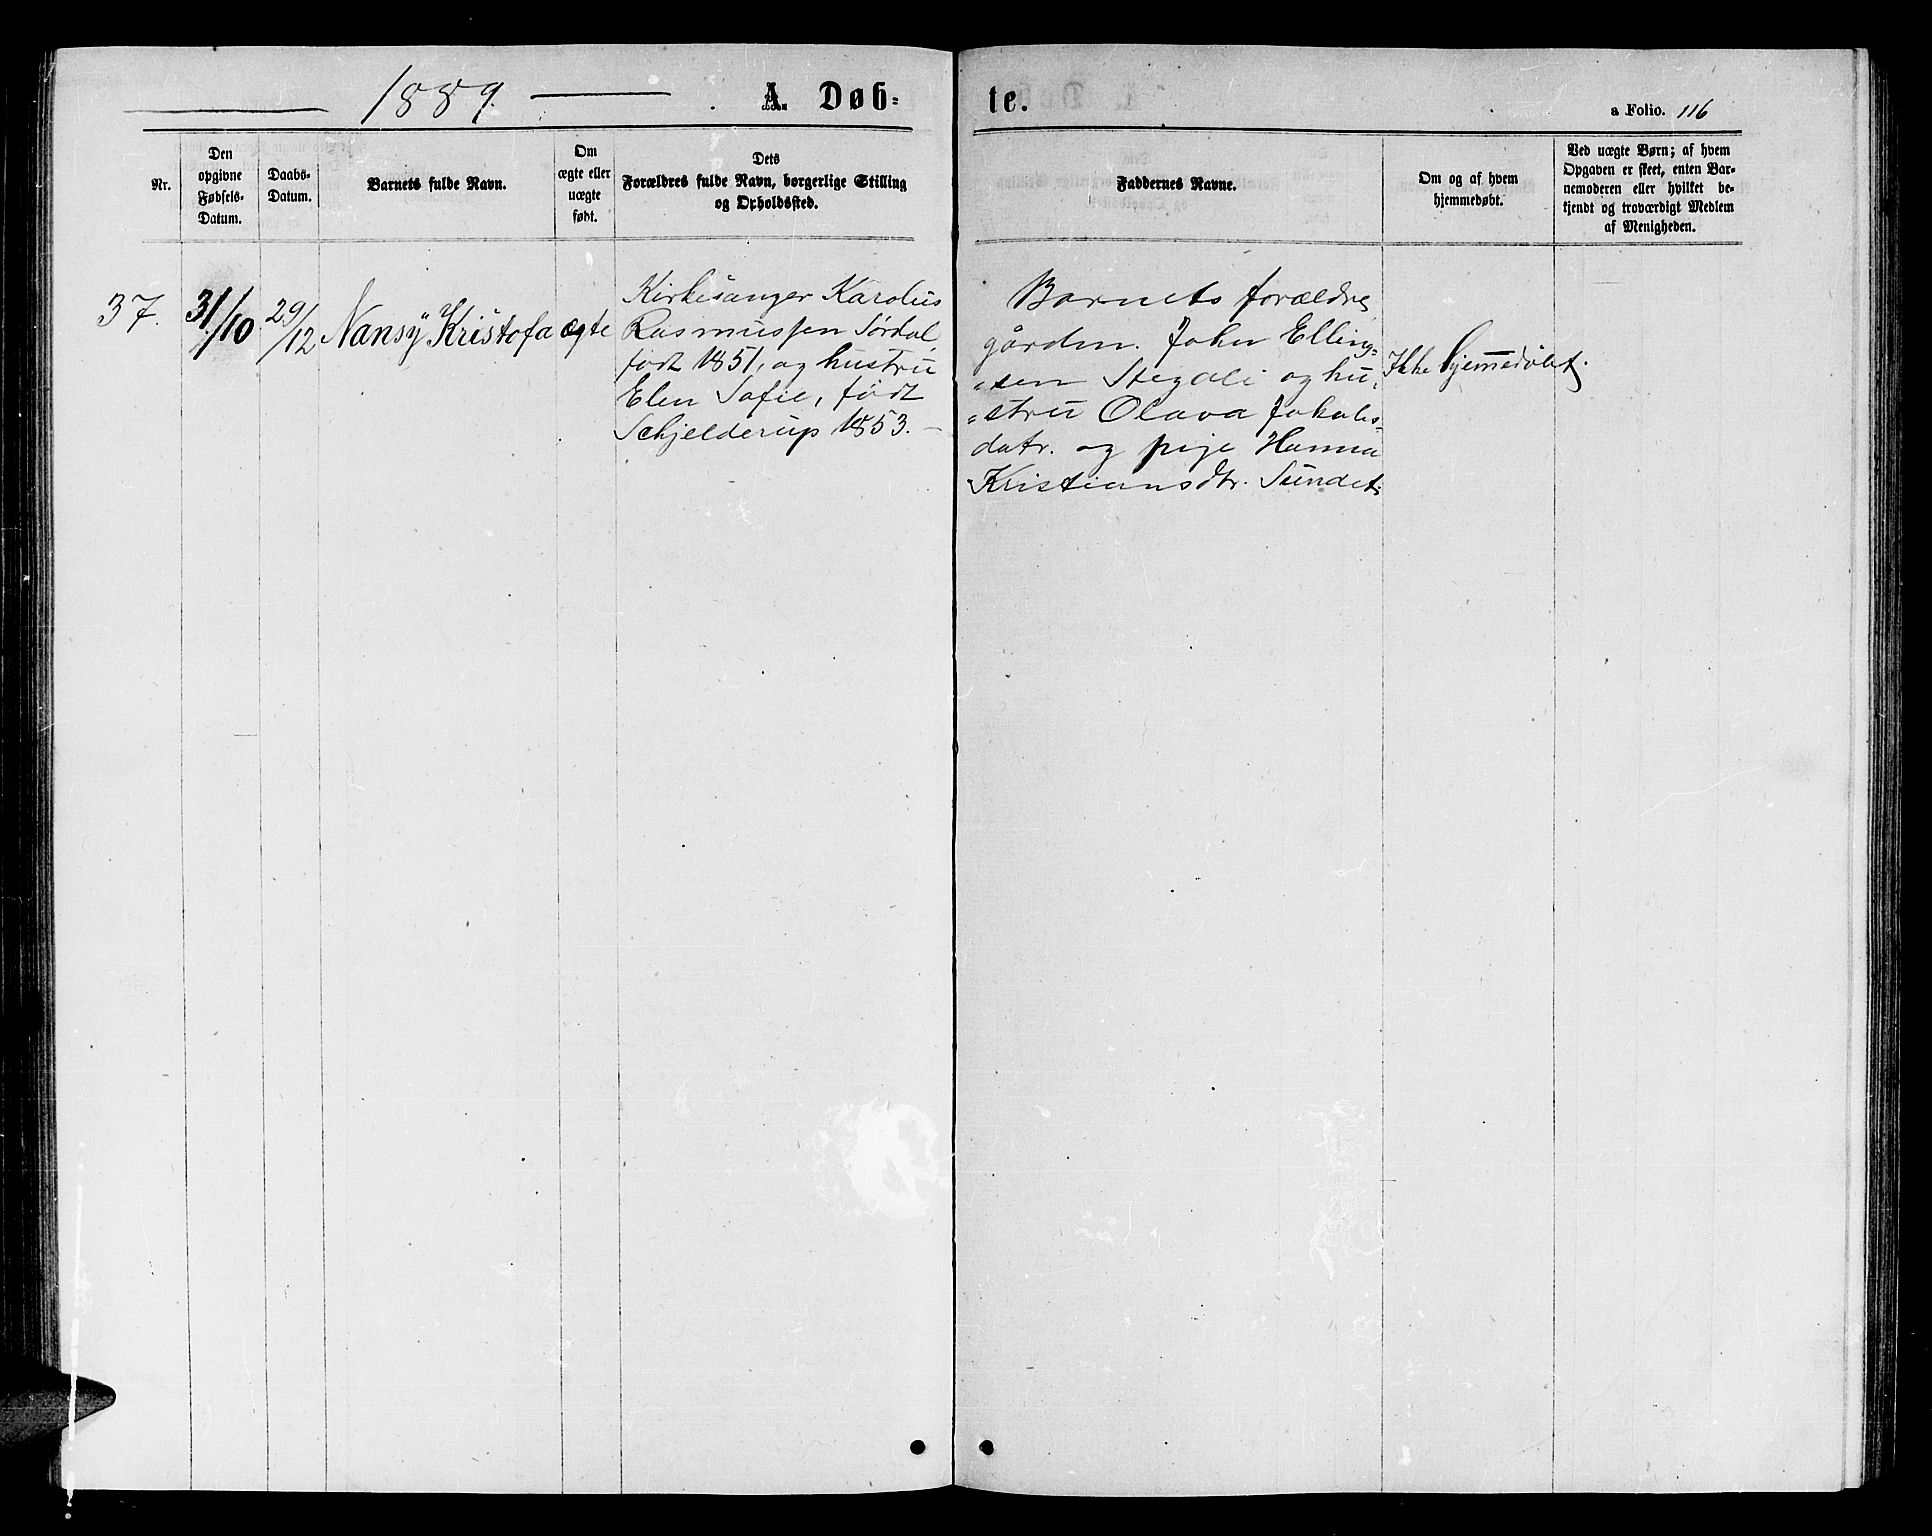 1889. A. Døb-
te.
a Folio. 116
Nr.
Den
opgivne
Fødsels-
Datum.
Daabs-
Datum.
Barnets fulde Navn.
Om
ægte eller
uægte
født.
Dets
Forældres fulde Navn, borgerlige Stilling
og Opholdssted.
Faddernes Navne.
Om og af hvem
hjemmedøbt.
Ved uægte Børn; af hvem
Opgaven er skeet, enten Bar-
nemoderen eller hvilket be-
kjendt og troværdigt Medlem
af Menigheden.
37.
31/10
29/12
Nansy Kristofa
ægte
Kirkesanger Karolus
Rasmussen Sørdal,
født 1851, og hustru
Elen Sofie, født
Schjelderup 1853. —
Barnets forældre,
gårdm. Joker Elling-
sen Stegali og hu-
stru Olava Jakobs-
datr. og pige Hanna
Kristiansdtr. Sundet.
Ikke hjemmedøbt.